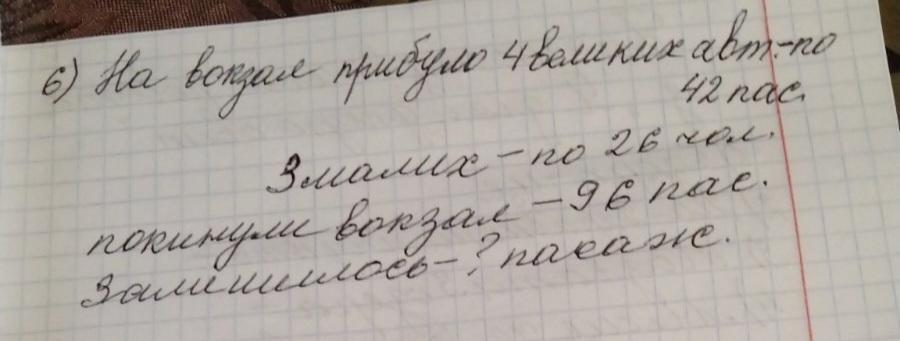 6) На вокзал прибуло 4 великих авт.-по
42 пас.
3 малих - по 26 чол.
покинули вокзал - 96 пас.
Залишилось - ? пасаж.